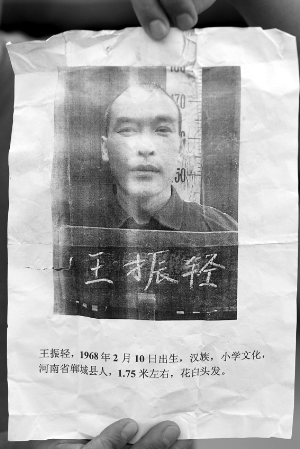 70
50
王振轻
王振轻，1968 年 2 月 10 日出生，汉族，小学文化，
河南省郸城县人，1.75 米左右，花白头发。